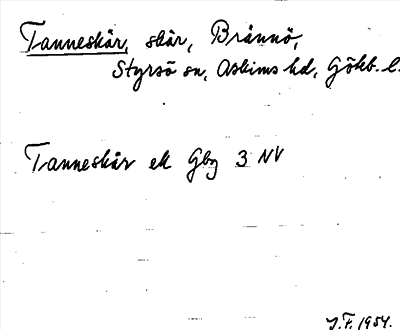 Tanneskär, skär, Brännö,
Styrsö sn, Askims hd, Göteb. l.
Tanneskär ek Gbg 3 NV
J.F. 1954.